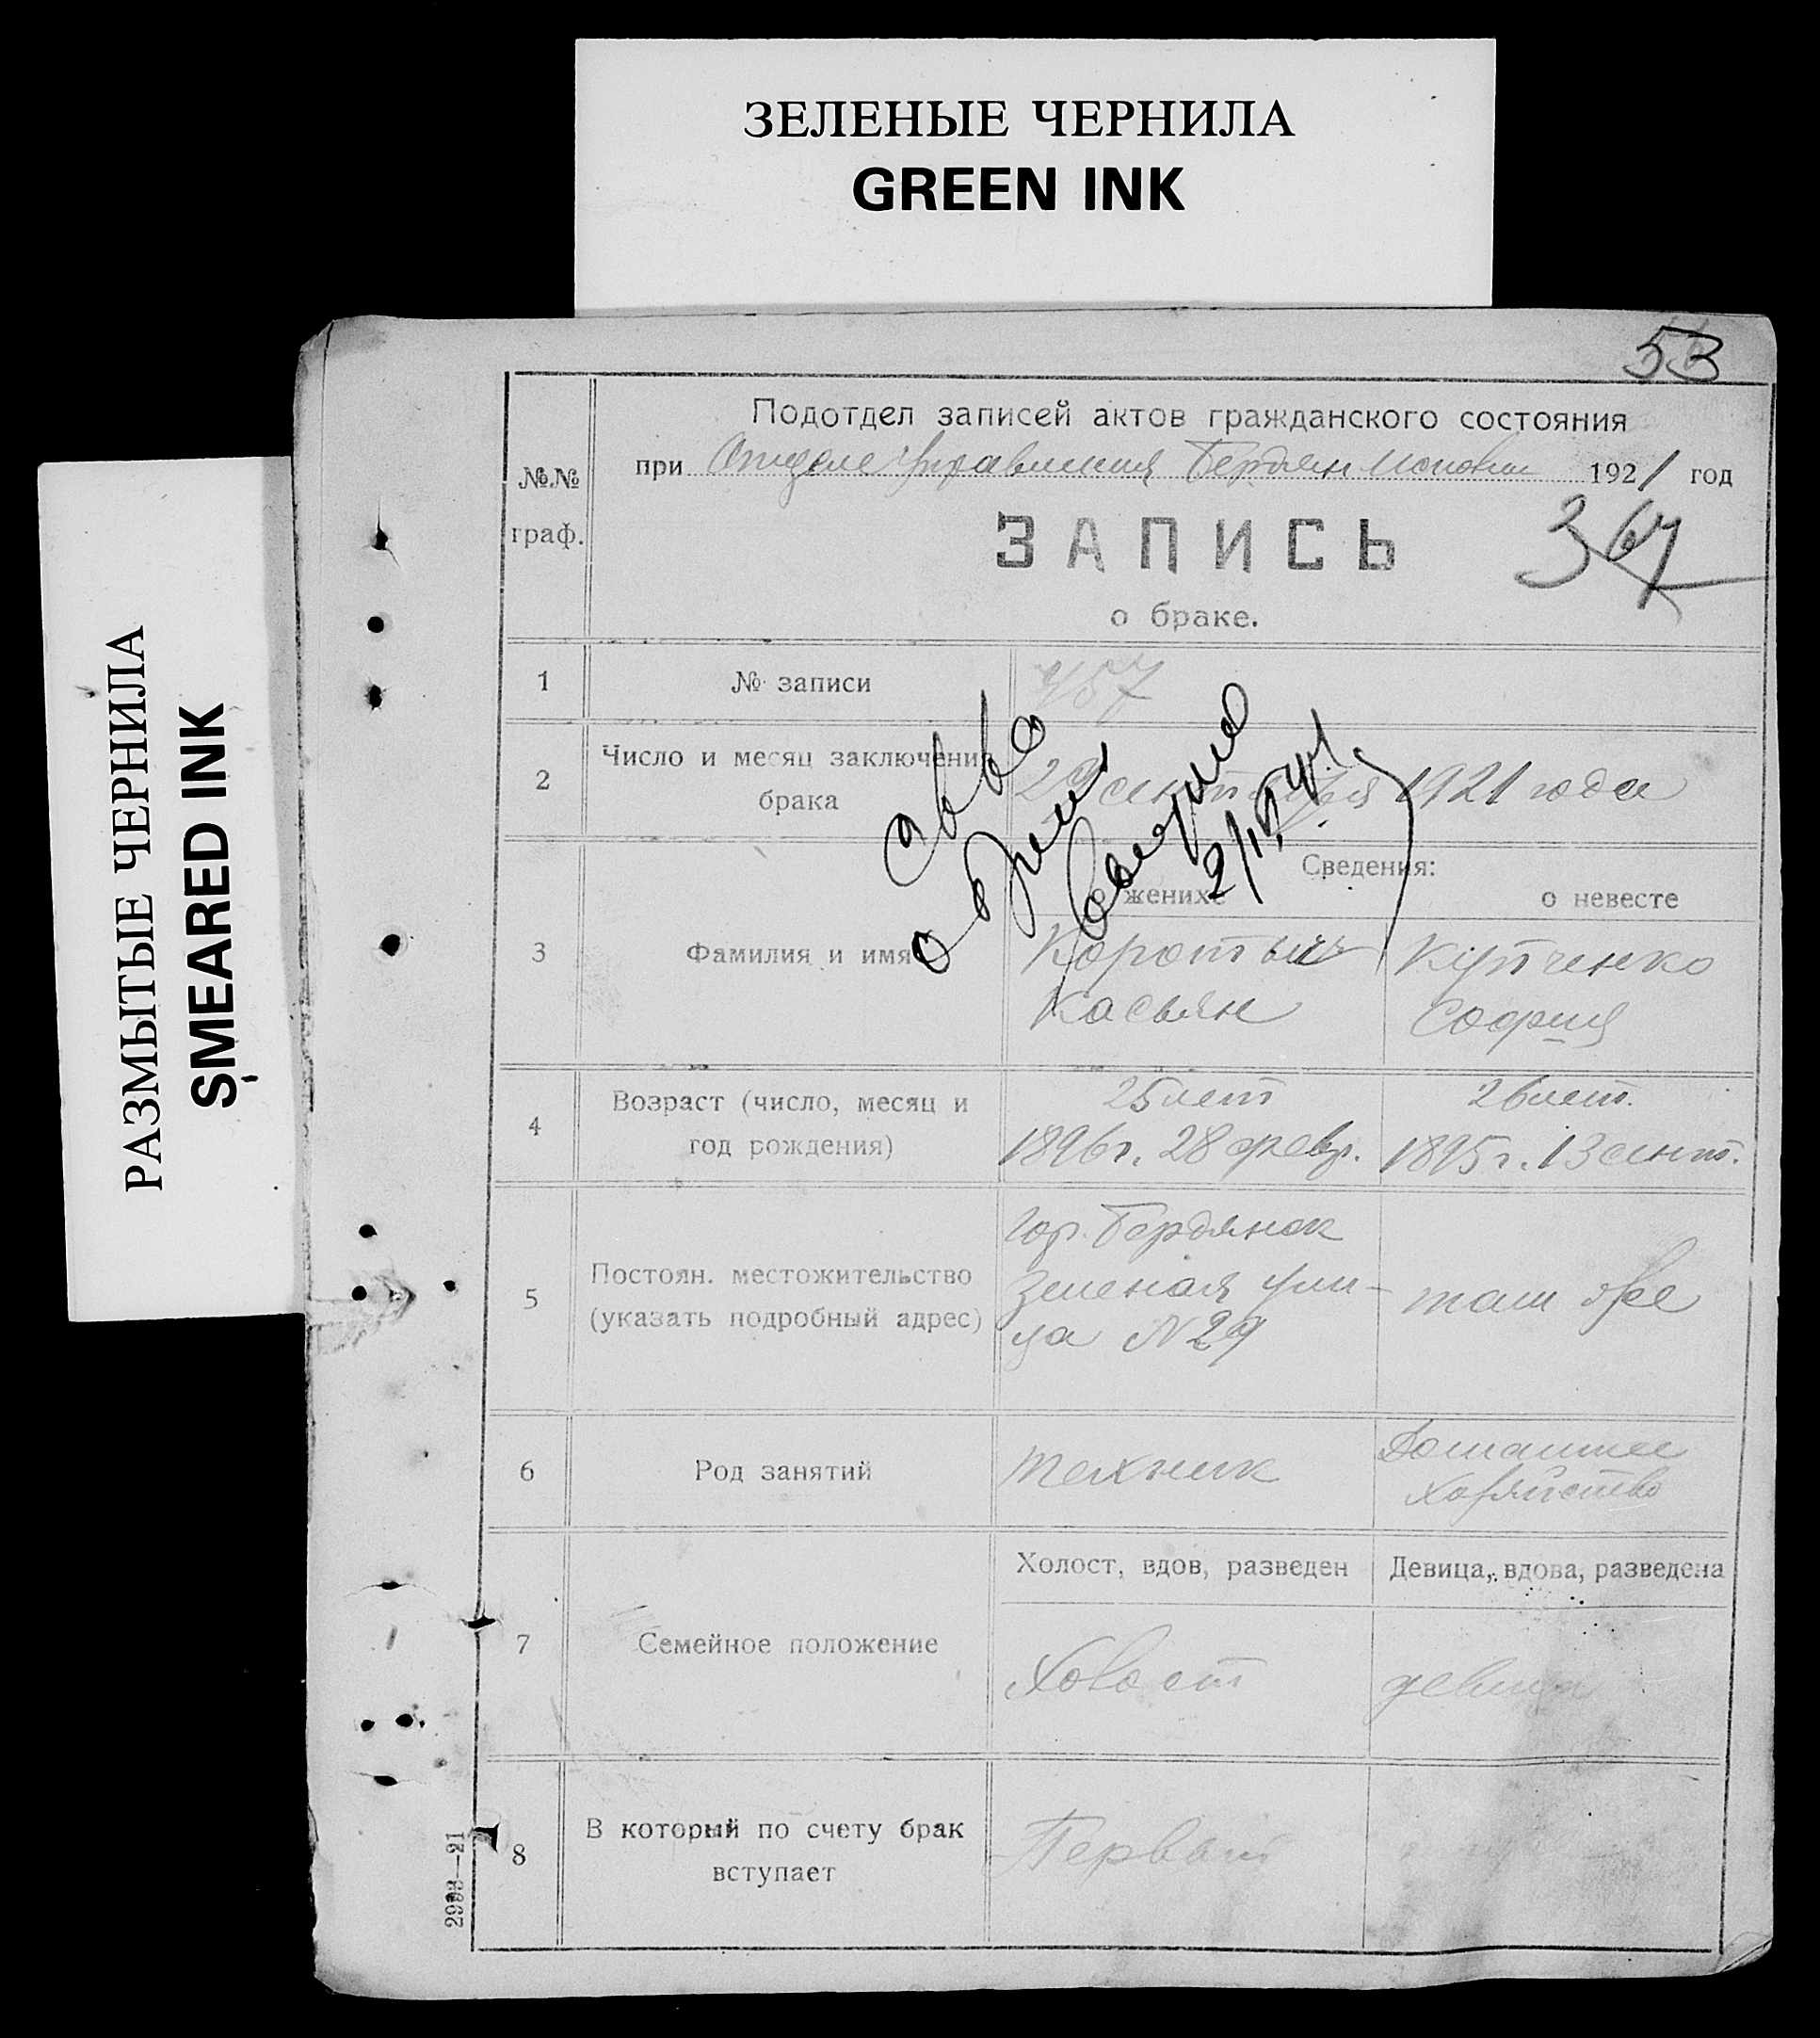 ЗЕЛЕНЫЕ ЧЕРНИЛА
GREEN INK
РАЗМЫТЫЕ ЧЕРНИЛА
SMEARED INK
53
Подотдел записей актов гражданского состояния
№№ граф.
при Отделе Управления Бердян 1921 год
ЗАПИСЬ
367
о браке.
1 № записи 457
2 Число и месяц заключения брака 29 сентября 1921 года
Сведения:
о женихе о невесте
3 Фамилия и имя
Коротыч Касьян
Купченко София
4 Возраст (число, месяц и год рождения)
25 лет 1896 г. 28 февр.
26 лет. 1895 г. 13 сент.
5 Постоян. местожительство (указать подробный адрес)
гор. Бердянск
Зеленая ули-
ца N 29
там же
6 Род занятий
техник
Домашнее хозяйство
7 Семейное положение
Холост, вдов, разведен
Девица, вдова, разведена
Холост
девица
8 В который по счету брак вступает
Первый
2993—21